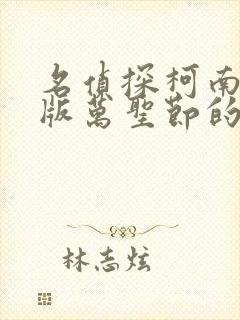 名偵探柯南
版萬聖節的
林志炫